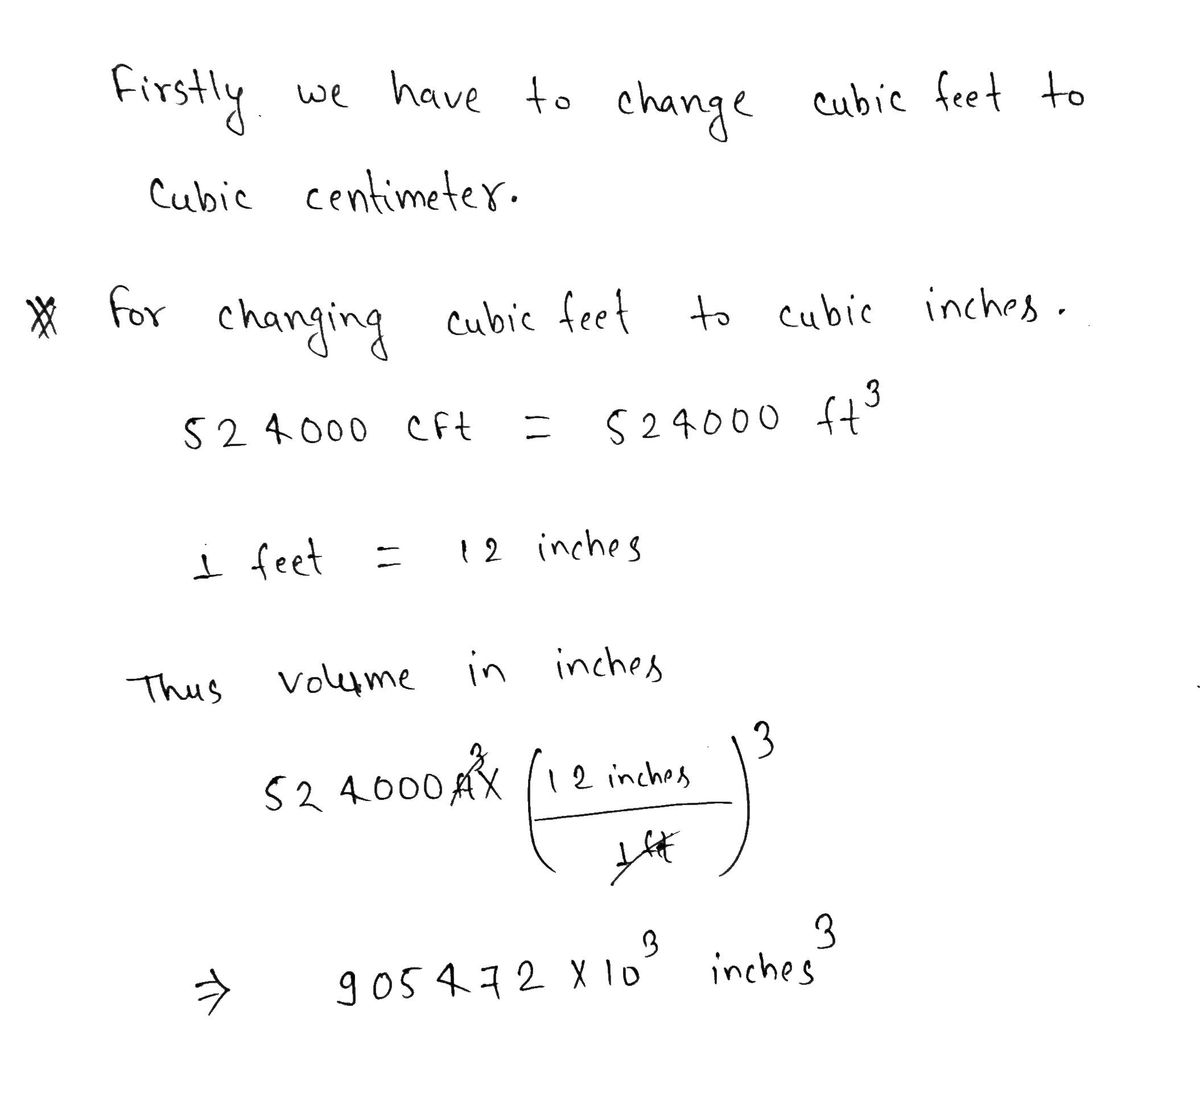 Firstly we have to change cubic feet to
Cubic centimeter.
* For changing cubic feet to cubic inches.
524000 cft = 524000 ft³
1 feet = 12 inches
Thus volume in inches
524000 ft³ X (12 inches / 1 ft)³
⇒ 905472 X 10³ inches³